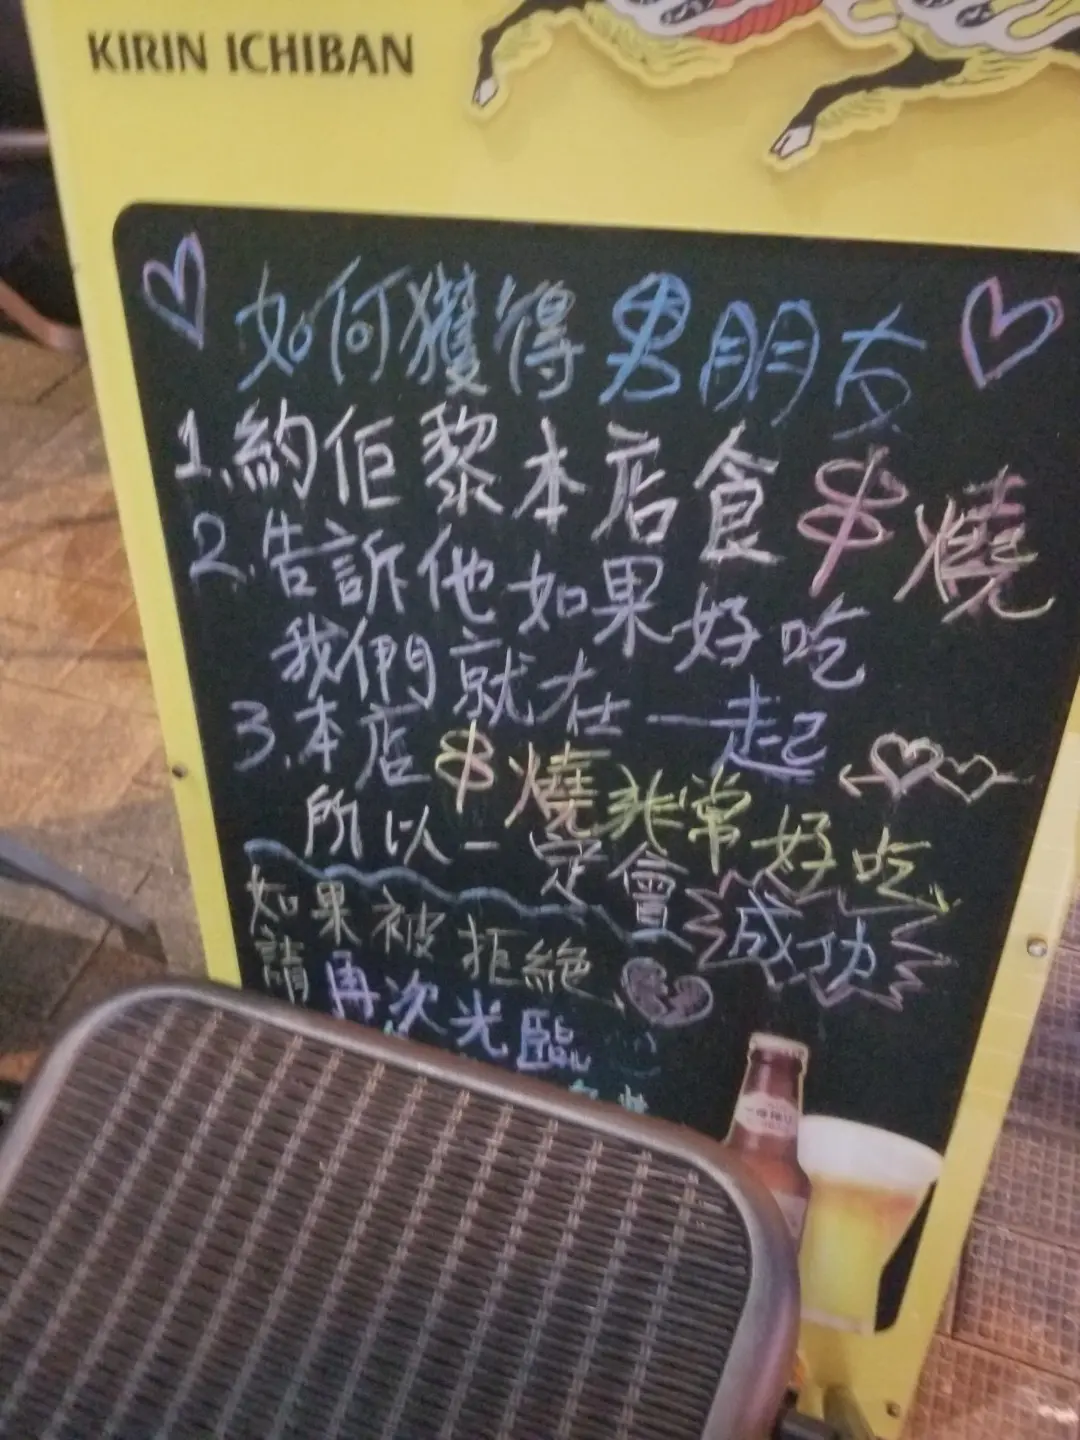 KIRIN ICHIBAN
如何獲得男朋友
1.約佢黎本店食串燒
2.告訴他如果好吃
我們就在一起
3.本店串燒非常好吃
所以一定會成功
如果被拒絕
請再次光臨